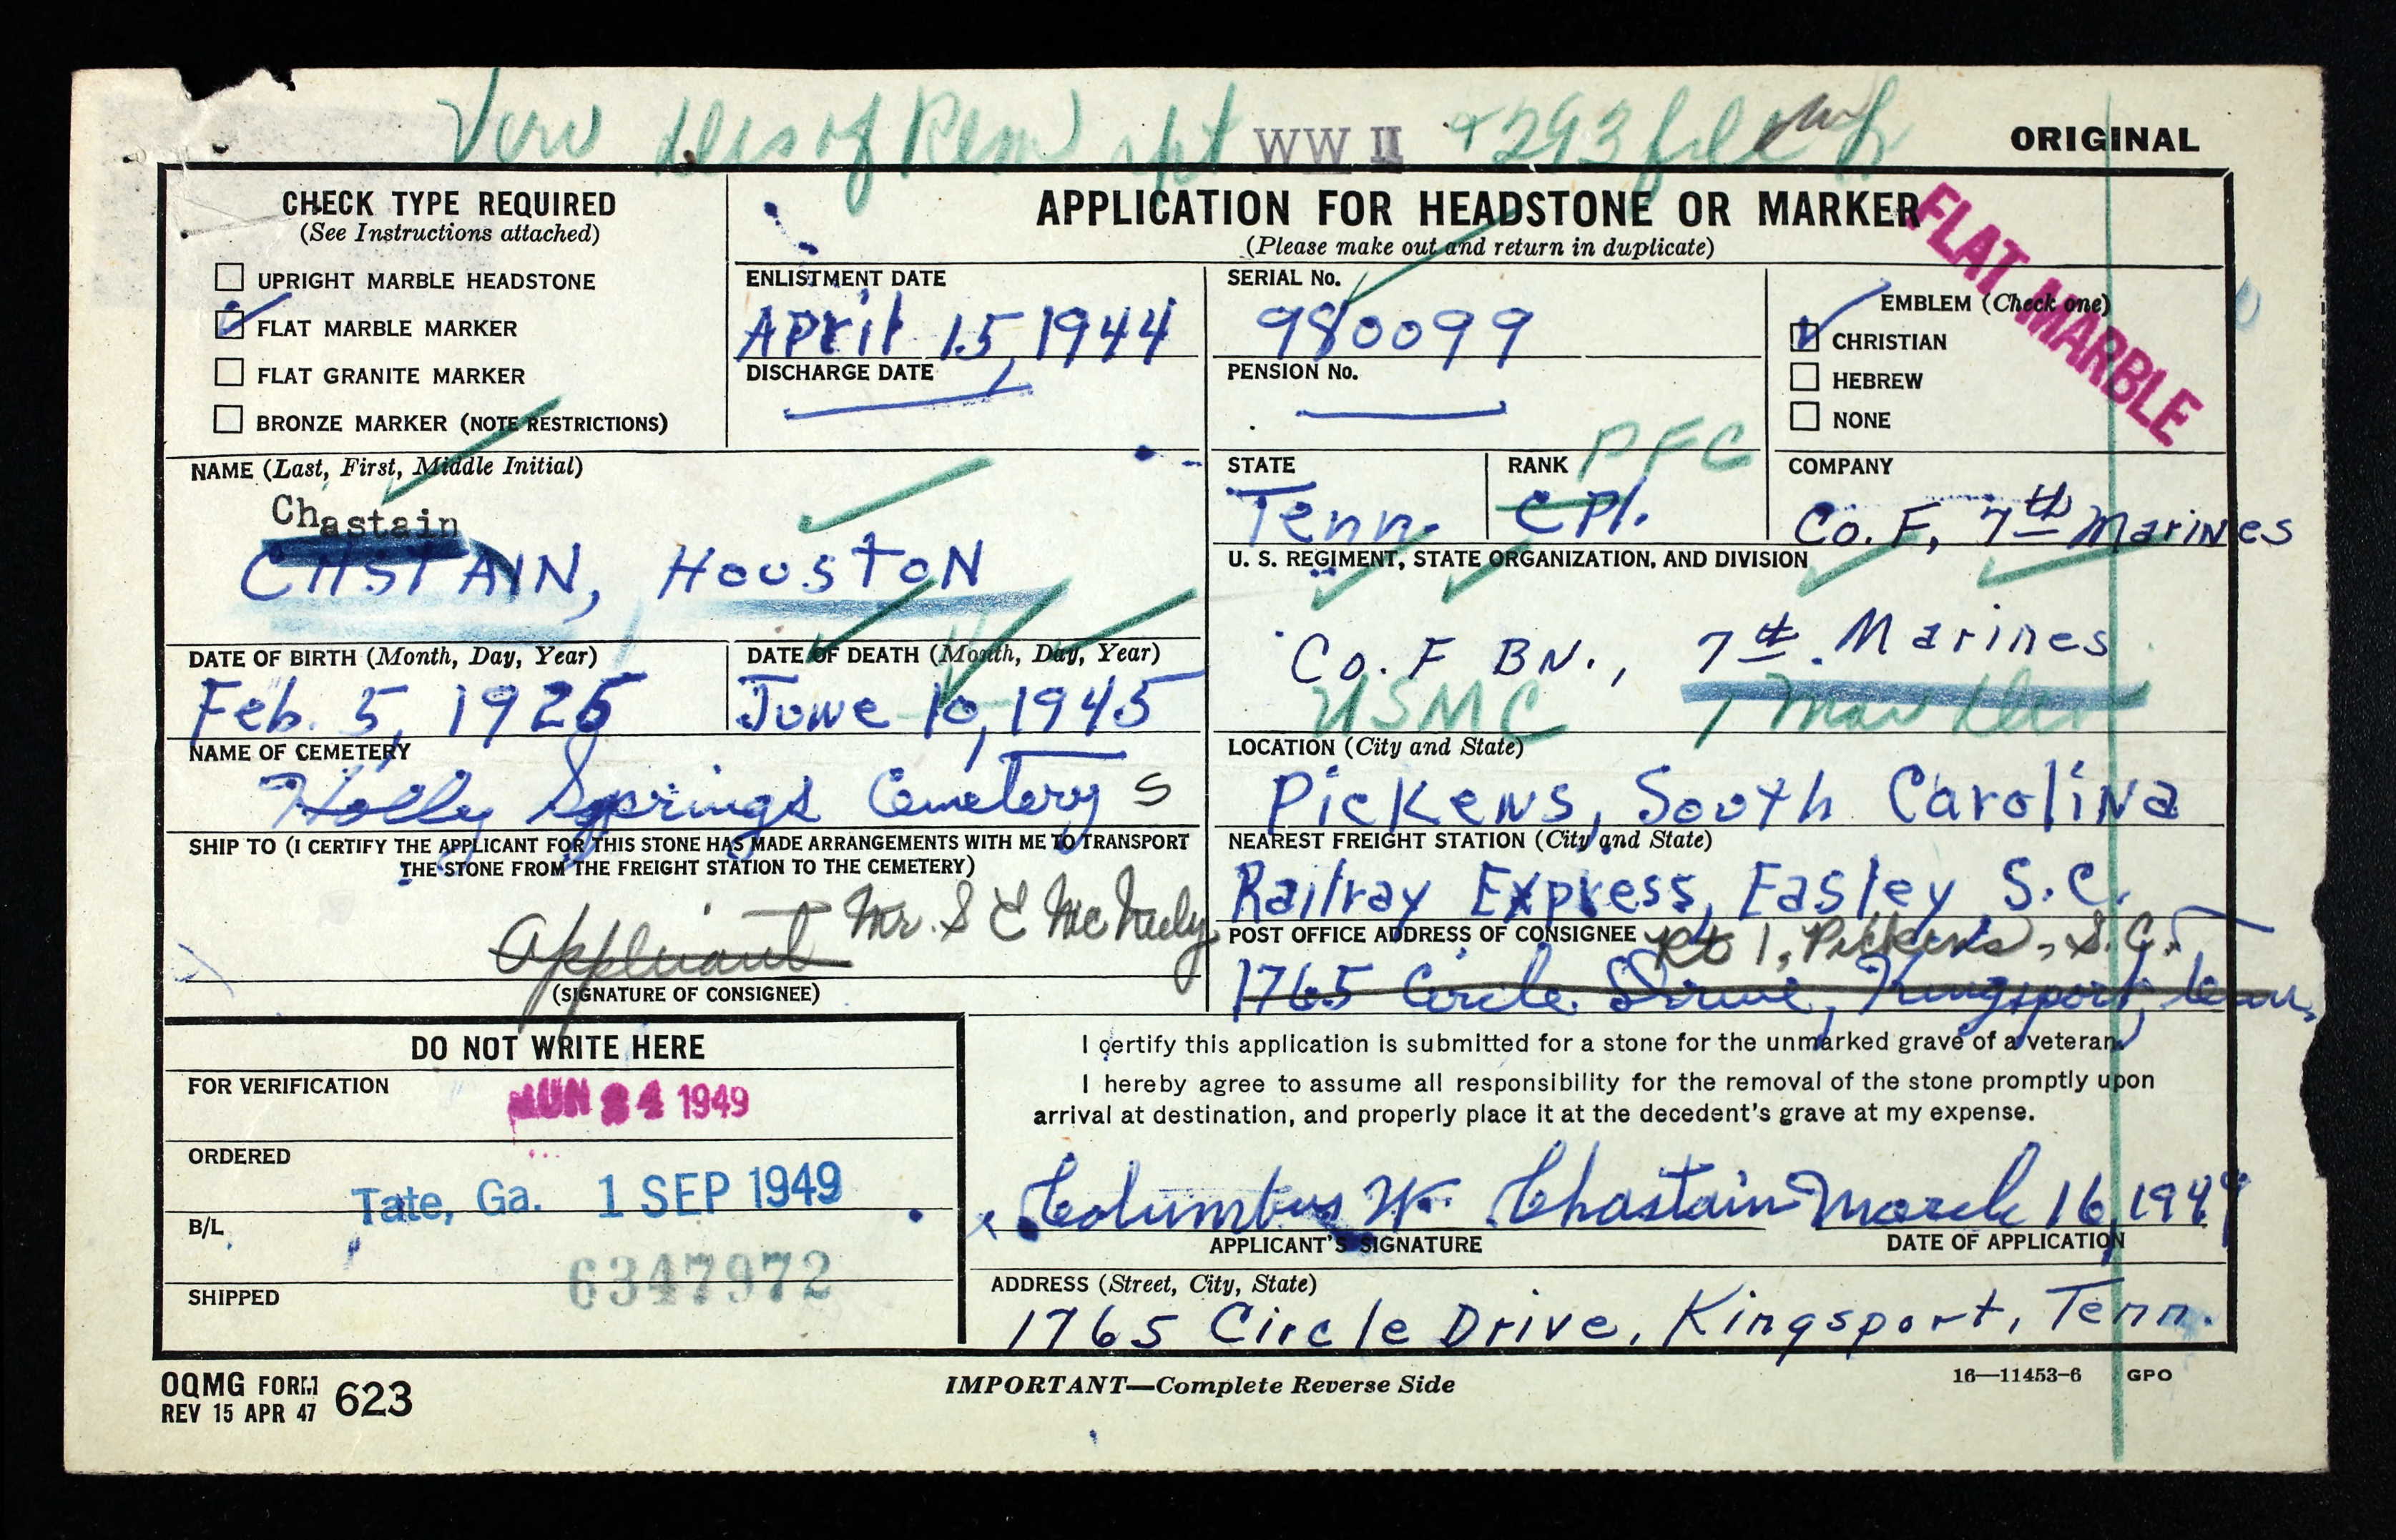 Verv Dis of Rem WW II + 293 file
ORIGINAL
CHECK TYPE REQUIRED
(See Instructions attached)
UPRIGHT MARBLE HEADSTONE
FLAT MARBLE MARKER
FLAT GRANITE MARKER
BRONZE MARKER (NOTE RESTRICTIONS)
APPLICATION FOR HEADSTONE OR MARKER
(Please make out and return in duplicate)
FLAT MARBLE
ENLISTMENT DATE
April 15, 1944
DISCHARGE DATE
SERIAL No.
980099
PENSION No.
EMBLEM (Check one)
CHRISTIAN
HEBREW
NONE
NAME (Last, First, Middle Initial)
Chastain
CHSTAIN, HOUSTON
STATE
Tenn.
RANK PFC
CPl.
COMPANY
Co. F, 7th Marines
U. S. REGIMENT, STATE ORGANIZATION, AND DIVISION
Co. F BN., 7th Marines
USMC 1 Mar Div
DATE OF BIRTH (Month, Day, Year)
Feb. 5, 1925
DATE OF DEATH (Month, Day, Year)
June 10, 1945
NAME OF CEMETERY
Holly Springs Cemetery S
LOCATION (City and State)
Pickens, South Carolina
SHIP TO (I CERTIFY THE APPLICANT FOR THIS STONE HAS MADE ARRANGEMENTS WITH ME TO TRANSPORT
THE STONE FROM THE FREIGHT STATION TO THE CEMETERY)
Applicant Mr. S E McNeely
(SIGNATURE OF CONSIGNEE)
NEAREST FREIGHT STATION (City and State)
Railray Express, Easley S.C.
POST OFFICE ADDRESS OF CONSIGNEE Rt 1, Pickens, S.C.
1765 Circle Drive, Kingsport, Tenn.
DO NOT WRITE HERE
FOR VERIFICATION
JUN 24 1949
ORDERED
Tate, Ga. 1 SEP 1949
B/L
6347972
SHIPPED
I certify this application is submitted for a stone for the unmarked grave of a veteran.
I hereby agree to assume all responsibility for the removal of the stone promptly upon
arrival at destination, and properly place it at the decedent's grave at my expense.
Columbus W. Chastain March 16, 1949
APPLICANT'S SIGNATURE
DATE OF APPLICATION
ADDRESS (Street, City, State)
1765 Circle Drive, Kingsport, Tenn.
OQMG FORM 623
REV 15 APR 47
IMPORTANT—Complete Reverse Side
16—11453-6 GPO